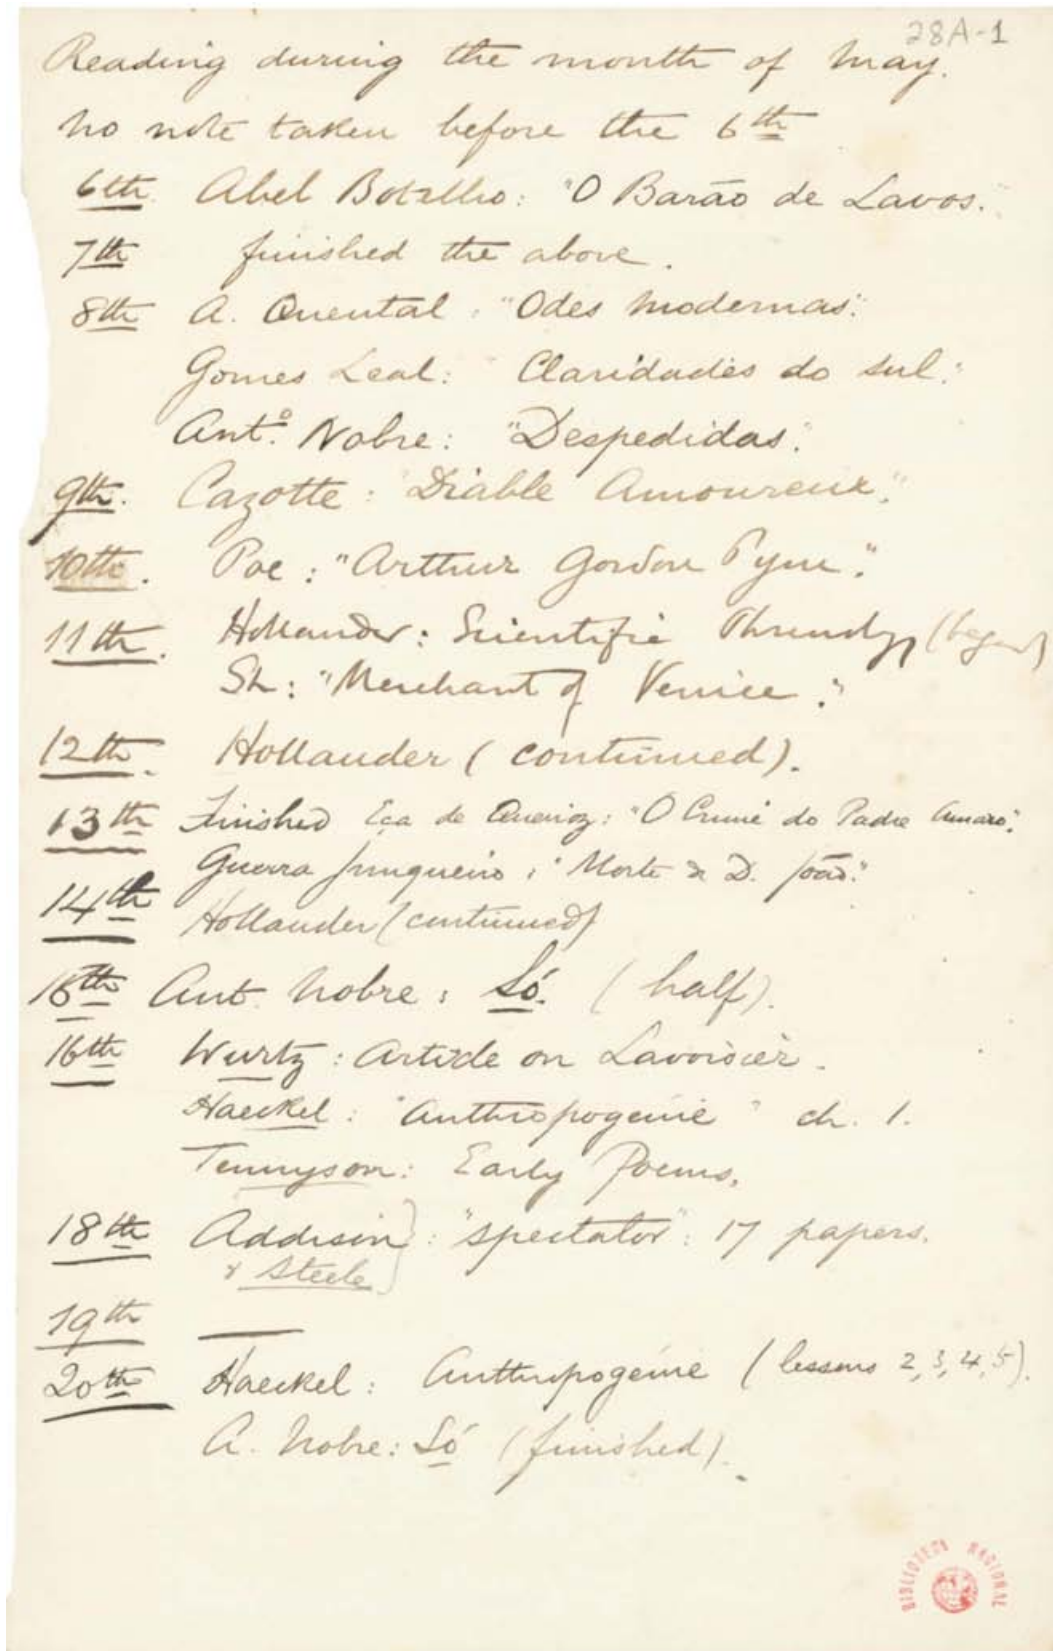 28A-1
Reading during the month of May.
No note taken before the 6th
6th. Abel Botelho: "O Barão de Lavos."
7th finished the above.
8th A. Quental: "Odes Modernas."
Gomes Leal: "Claridades do Sul."
Ant.º Nobre: "Despedidas."
9th. Cazotte: "Diable Amoureux."
10th. Poe: "Arthur Gordon Pym."
11th. Hollander: Scientific Phrenology (began)
Sh: "Merchant of Venice."
12th. Hollander (continued).
13th Finished Eça de Queiroz: "O Crime do Padre Amaro".
Guerra Junqueiro: "Morte de D. João."
14th Hollander (continued)
15th Ant. Nobre: Só. (half).
16th Wurtz: Article on Lavoisier.
Haeckel: "Anthropogenie" ch. 1.
Tennyson: Early Poems.
18th Addison}: "Spectator": 17 papers.
& Steele
19th —
20th Haeckel: Anthropogenie (lessons 2, 3, 4, 5).
A. Nobre: Só (finished).
BIBLIOTECA NACIONAL